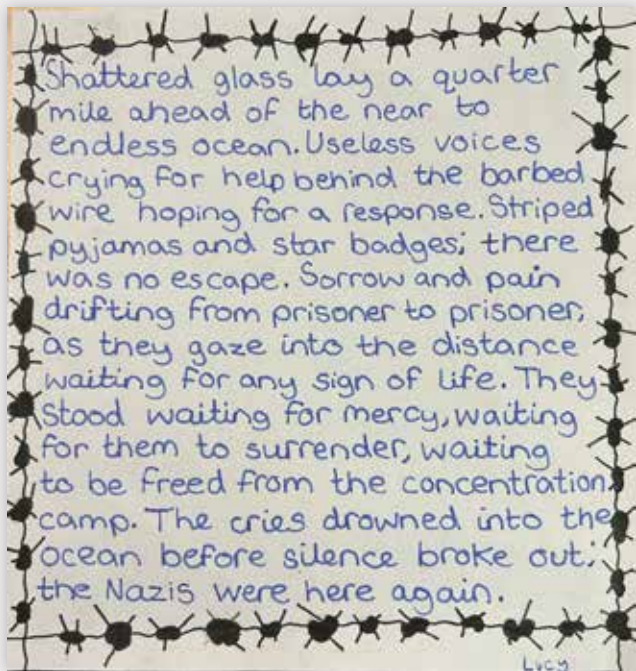 Shattered glass lay a quarter
mile ahead of the near to
endless ocean. Useless voices
crying for help behind the barbed
wire hoping for a response. Striped
pyjamas and star badges; there
was no escape. Sorrow and pain
drifting from prisoner to prisoner,
as they gaze into the distance
waiting for any sign of life. They
stood waiting for mercy, waiting
for them to surrender, waiting
to be freed from the concentration
camp. The cries drowned into the
ocean before silence broke out;
the Nazis were here again.
Lucy